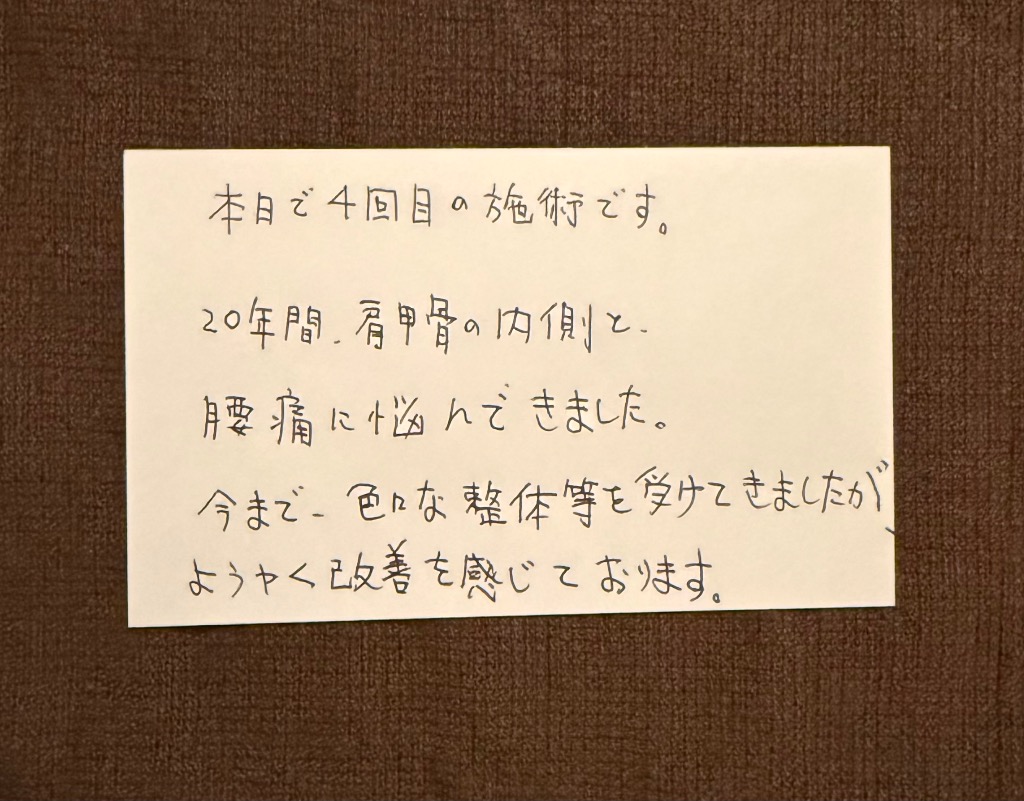 本日で4回目の施術です。
20年間、肩甲骨の内側と、
腰痛に悩んできました。
今まで、色々な整体等を受けてきましたが、
ようやく改善を感じております。